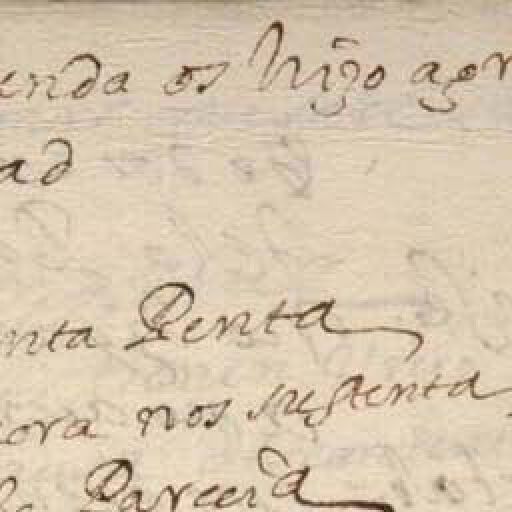 enda os hizo agr
ad
nta Renta
ora nos sustenta
Parcera